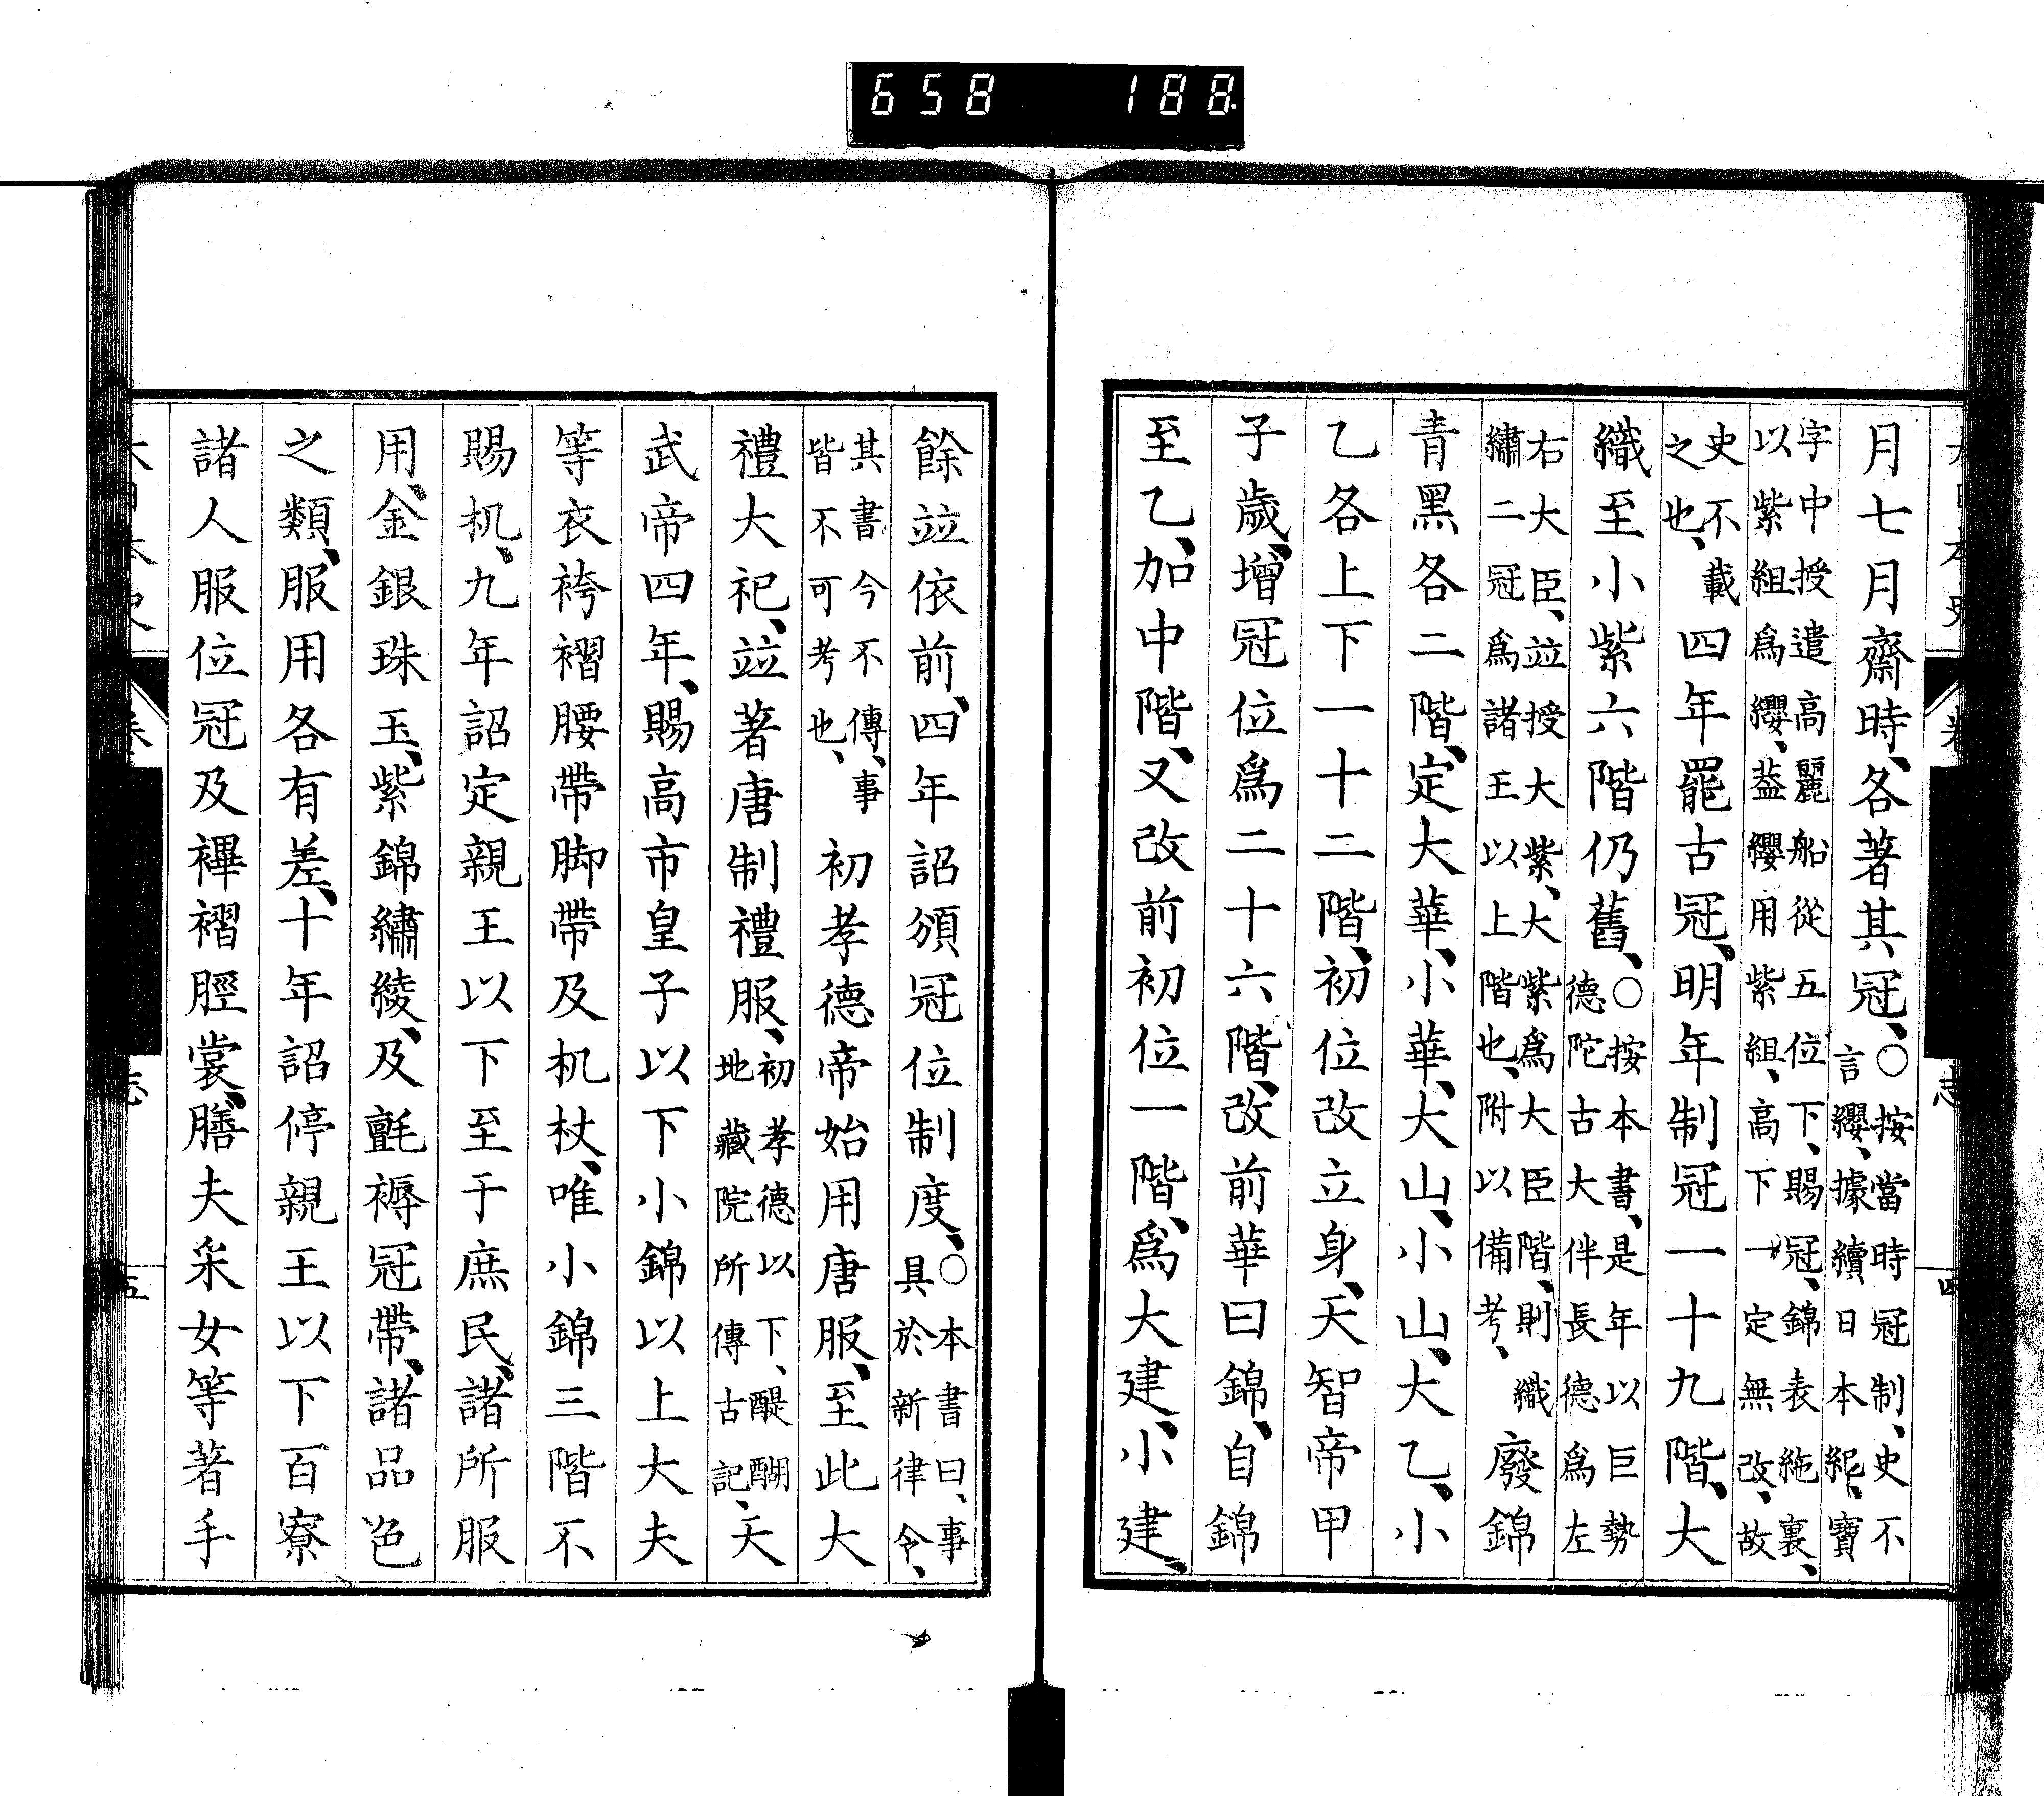 658 188
月七月齋時、各著其冠、○按當時冠制、史不言纓、據續日本紀、寶
字中授遣高麗船從五位下、賜冠、錦表絁裏、以紫組爲纓、蓋纓用紫組、高下一定無改、故
史不載之也、四年罷古冠、明年制冠一十九階、大
織至小紫六階仍舊、○按本書、是年以巨勢德陀古大伴長德爲左
右大臣、竝授大紫、大紫爲大臣階、則織繡二冠爲諸王以上階也、附以備考、廢錦
青黑各二階、定大華、小華、大山、小山、大乙、小
乙各上下一十二階、初位改立身、天智帝甲
子歲、增冠位爲二十六階、改前華曰錦、自錦
至乙、加中階、又改前初位一階、爲大建、小建、
四
餘竝依前、四年詔頒冠位制度、○本書曰、事具於新律令、
其書今不傳、事皆不可考也、初孝德帝始用唐服、至此大
禮大祀、竝著唐制禮服、初孝德以下、醍醐地藏院所傳古記、天
武帝四年、賜高市皇子以下小錦以上大夫
等衣袴褶腰帶脚帶及机杖、唯小錦三階不
賜机、九年詔定親王以下至于庶民、諸所服
用、金銀珠玉、紫錦繡綾、及氈褥冠帶、諸品色
之類、服用各有差、十年詔停親王以下百寮
諸人服位冠及褌褶脛裳、膳夫采女等著手
五